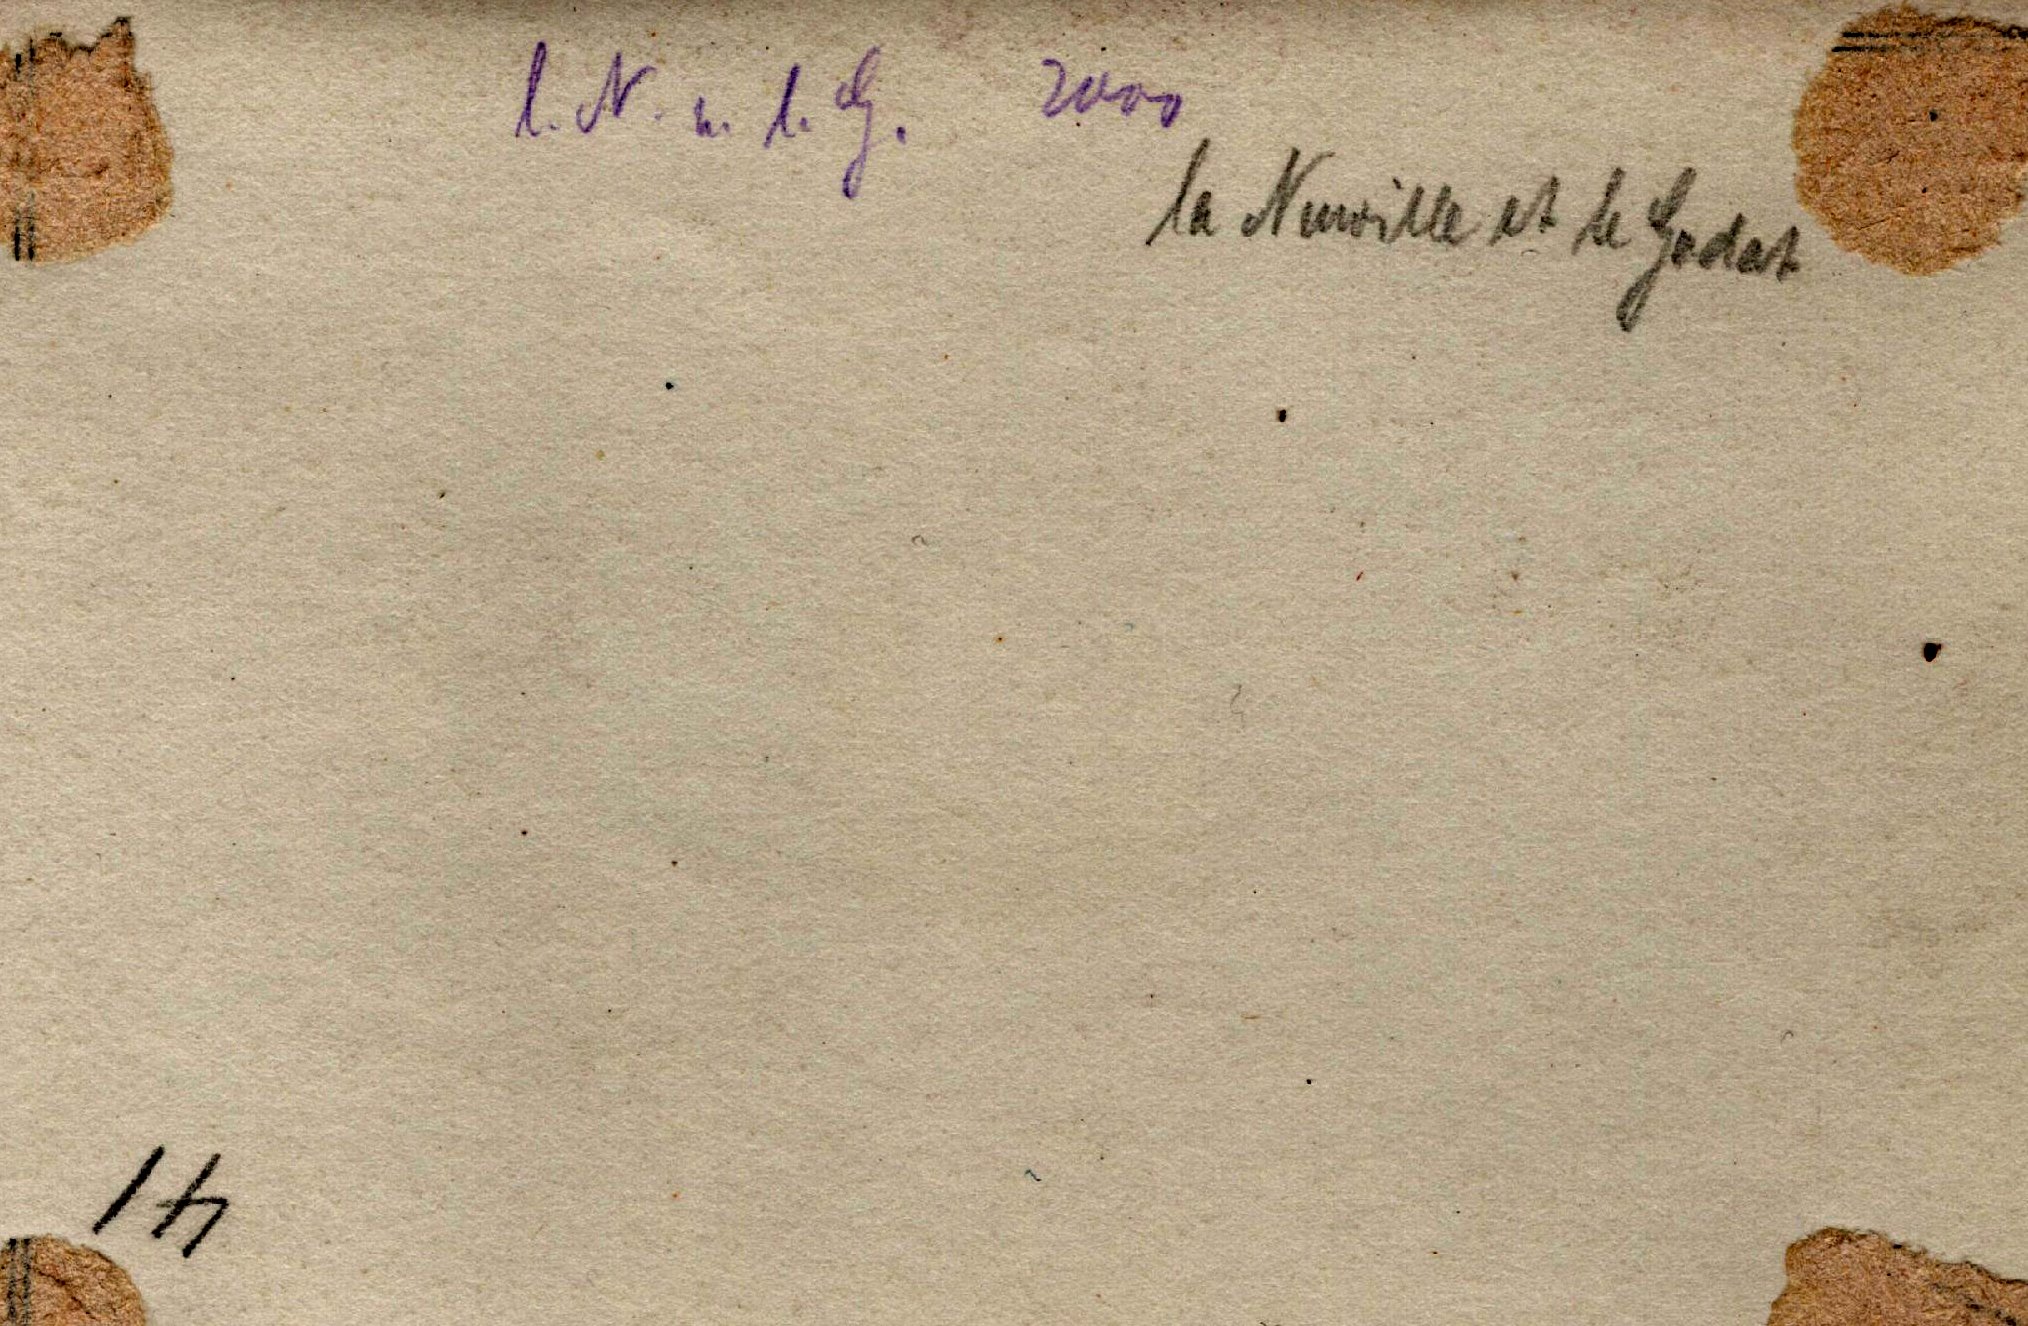 l. N. u. l. G. 2000
la Neuville et le Godat
41